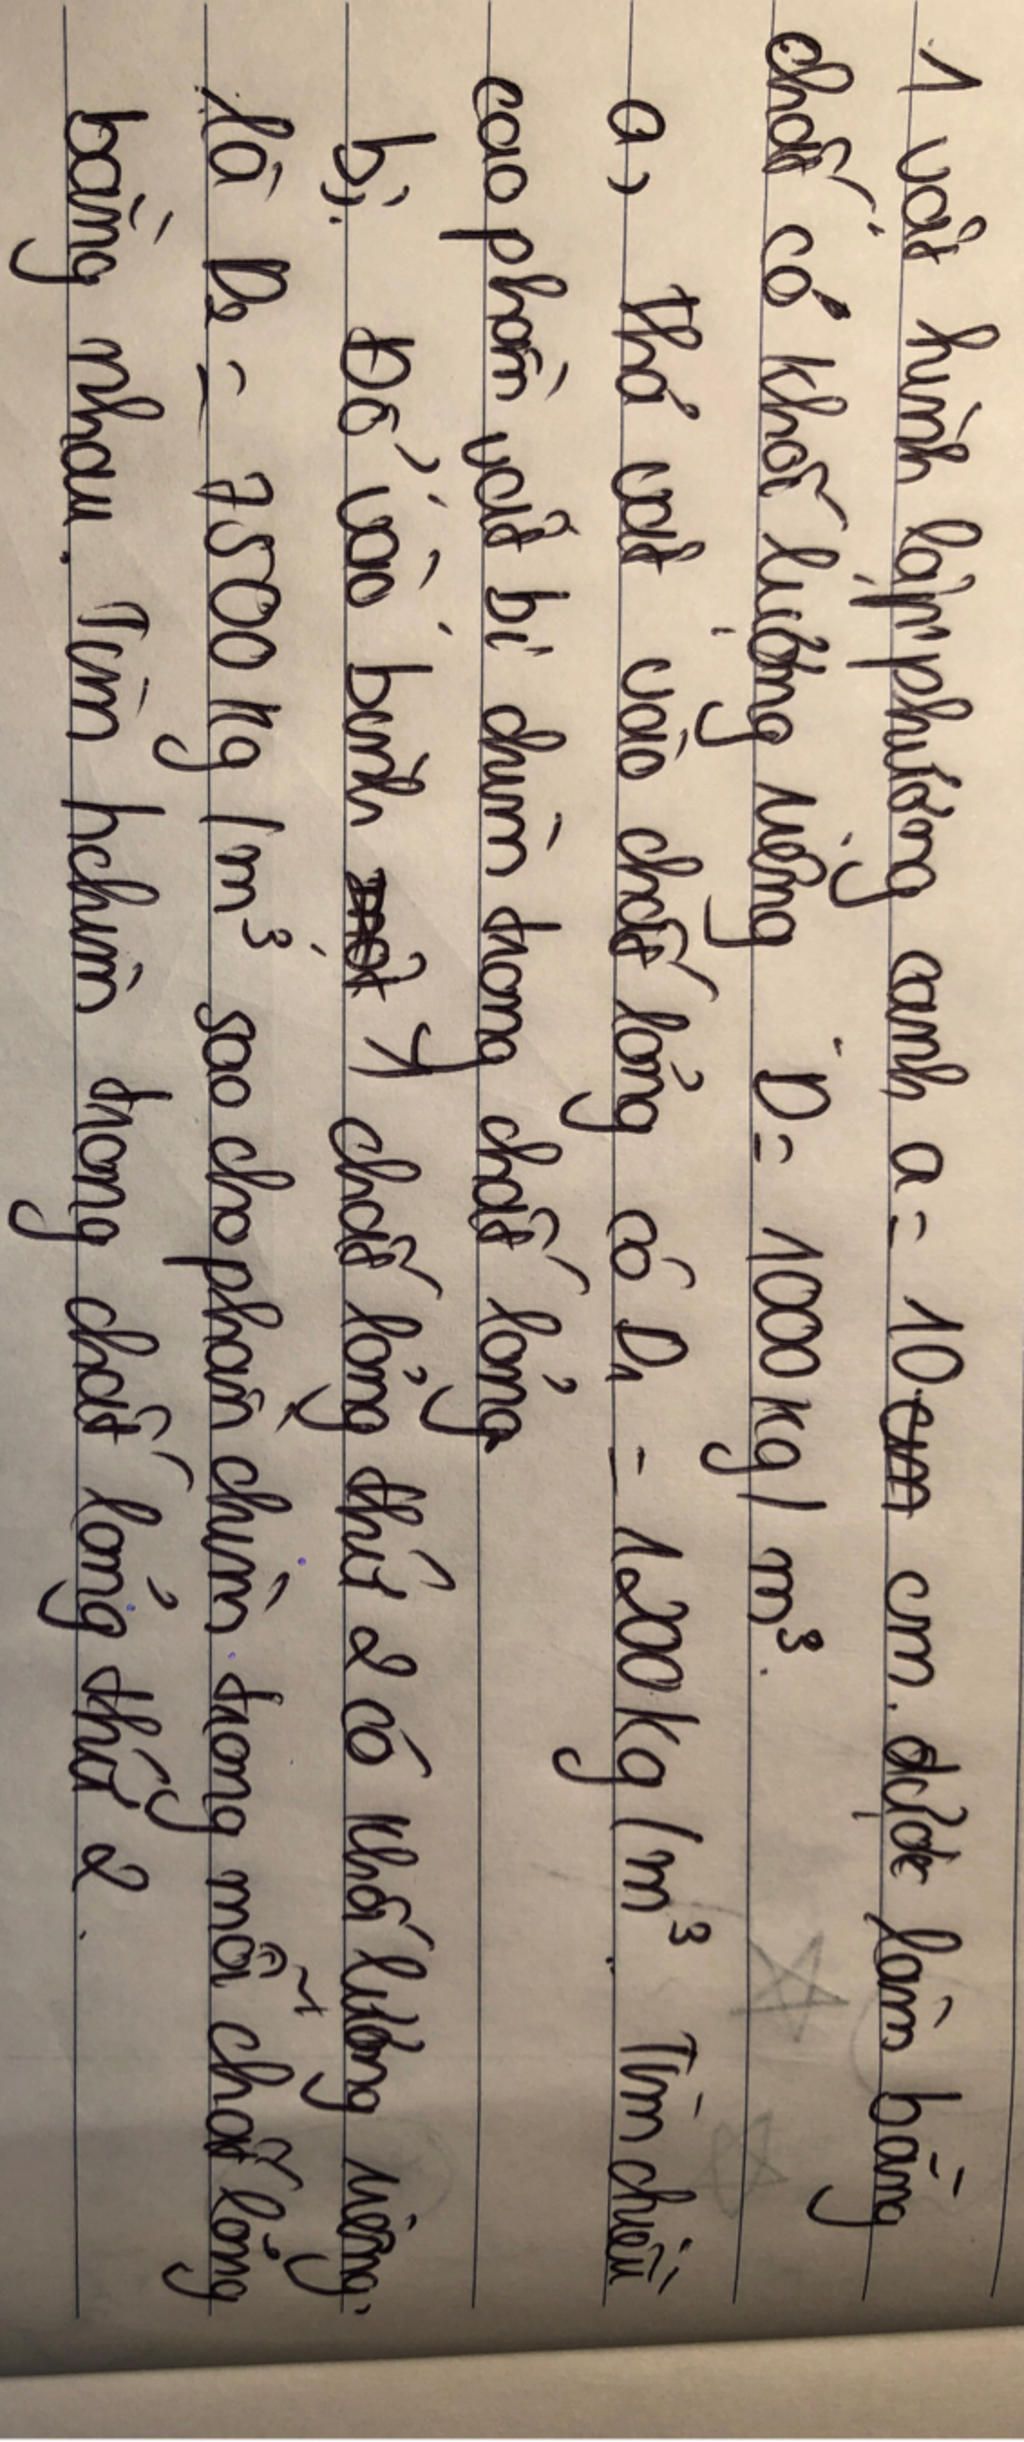 1 vật hình lập phương cạnh a = 10 cm. được làm bằng
chất có khối lượng riêng D = 1000 kg/m³.
a, thả vật vào chất lỏng có D₁ = 1200 kg/m³. Tìm chiều
cao phần vật bị chìm trong chất lỏng
b, Đổ vào bình 1 chất lỏng thứ 2 có khối lượng riêng
là D₂ = 7500 kg/m³ sao cho phần chìm trong mỗi chất lỏng
bằng nhau. Tìm hchìm trong chất lỏng thứ 2.